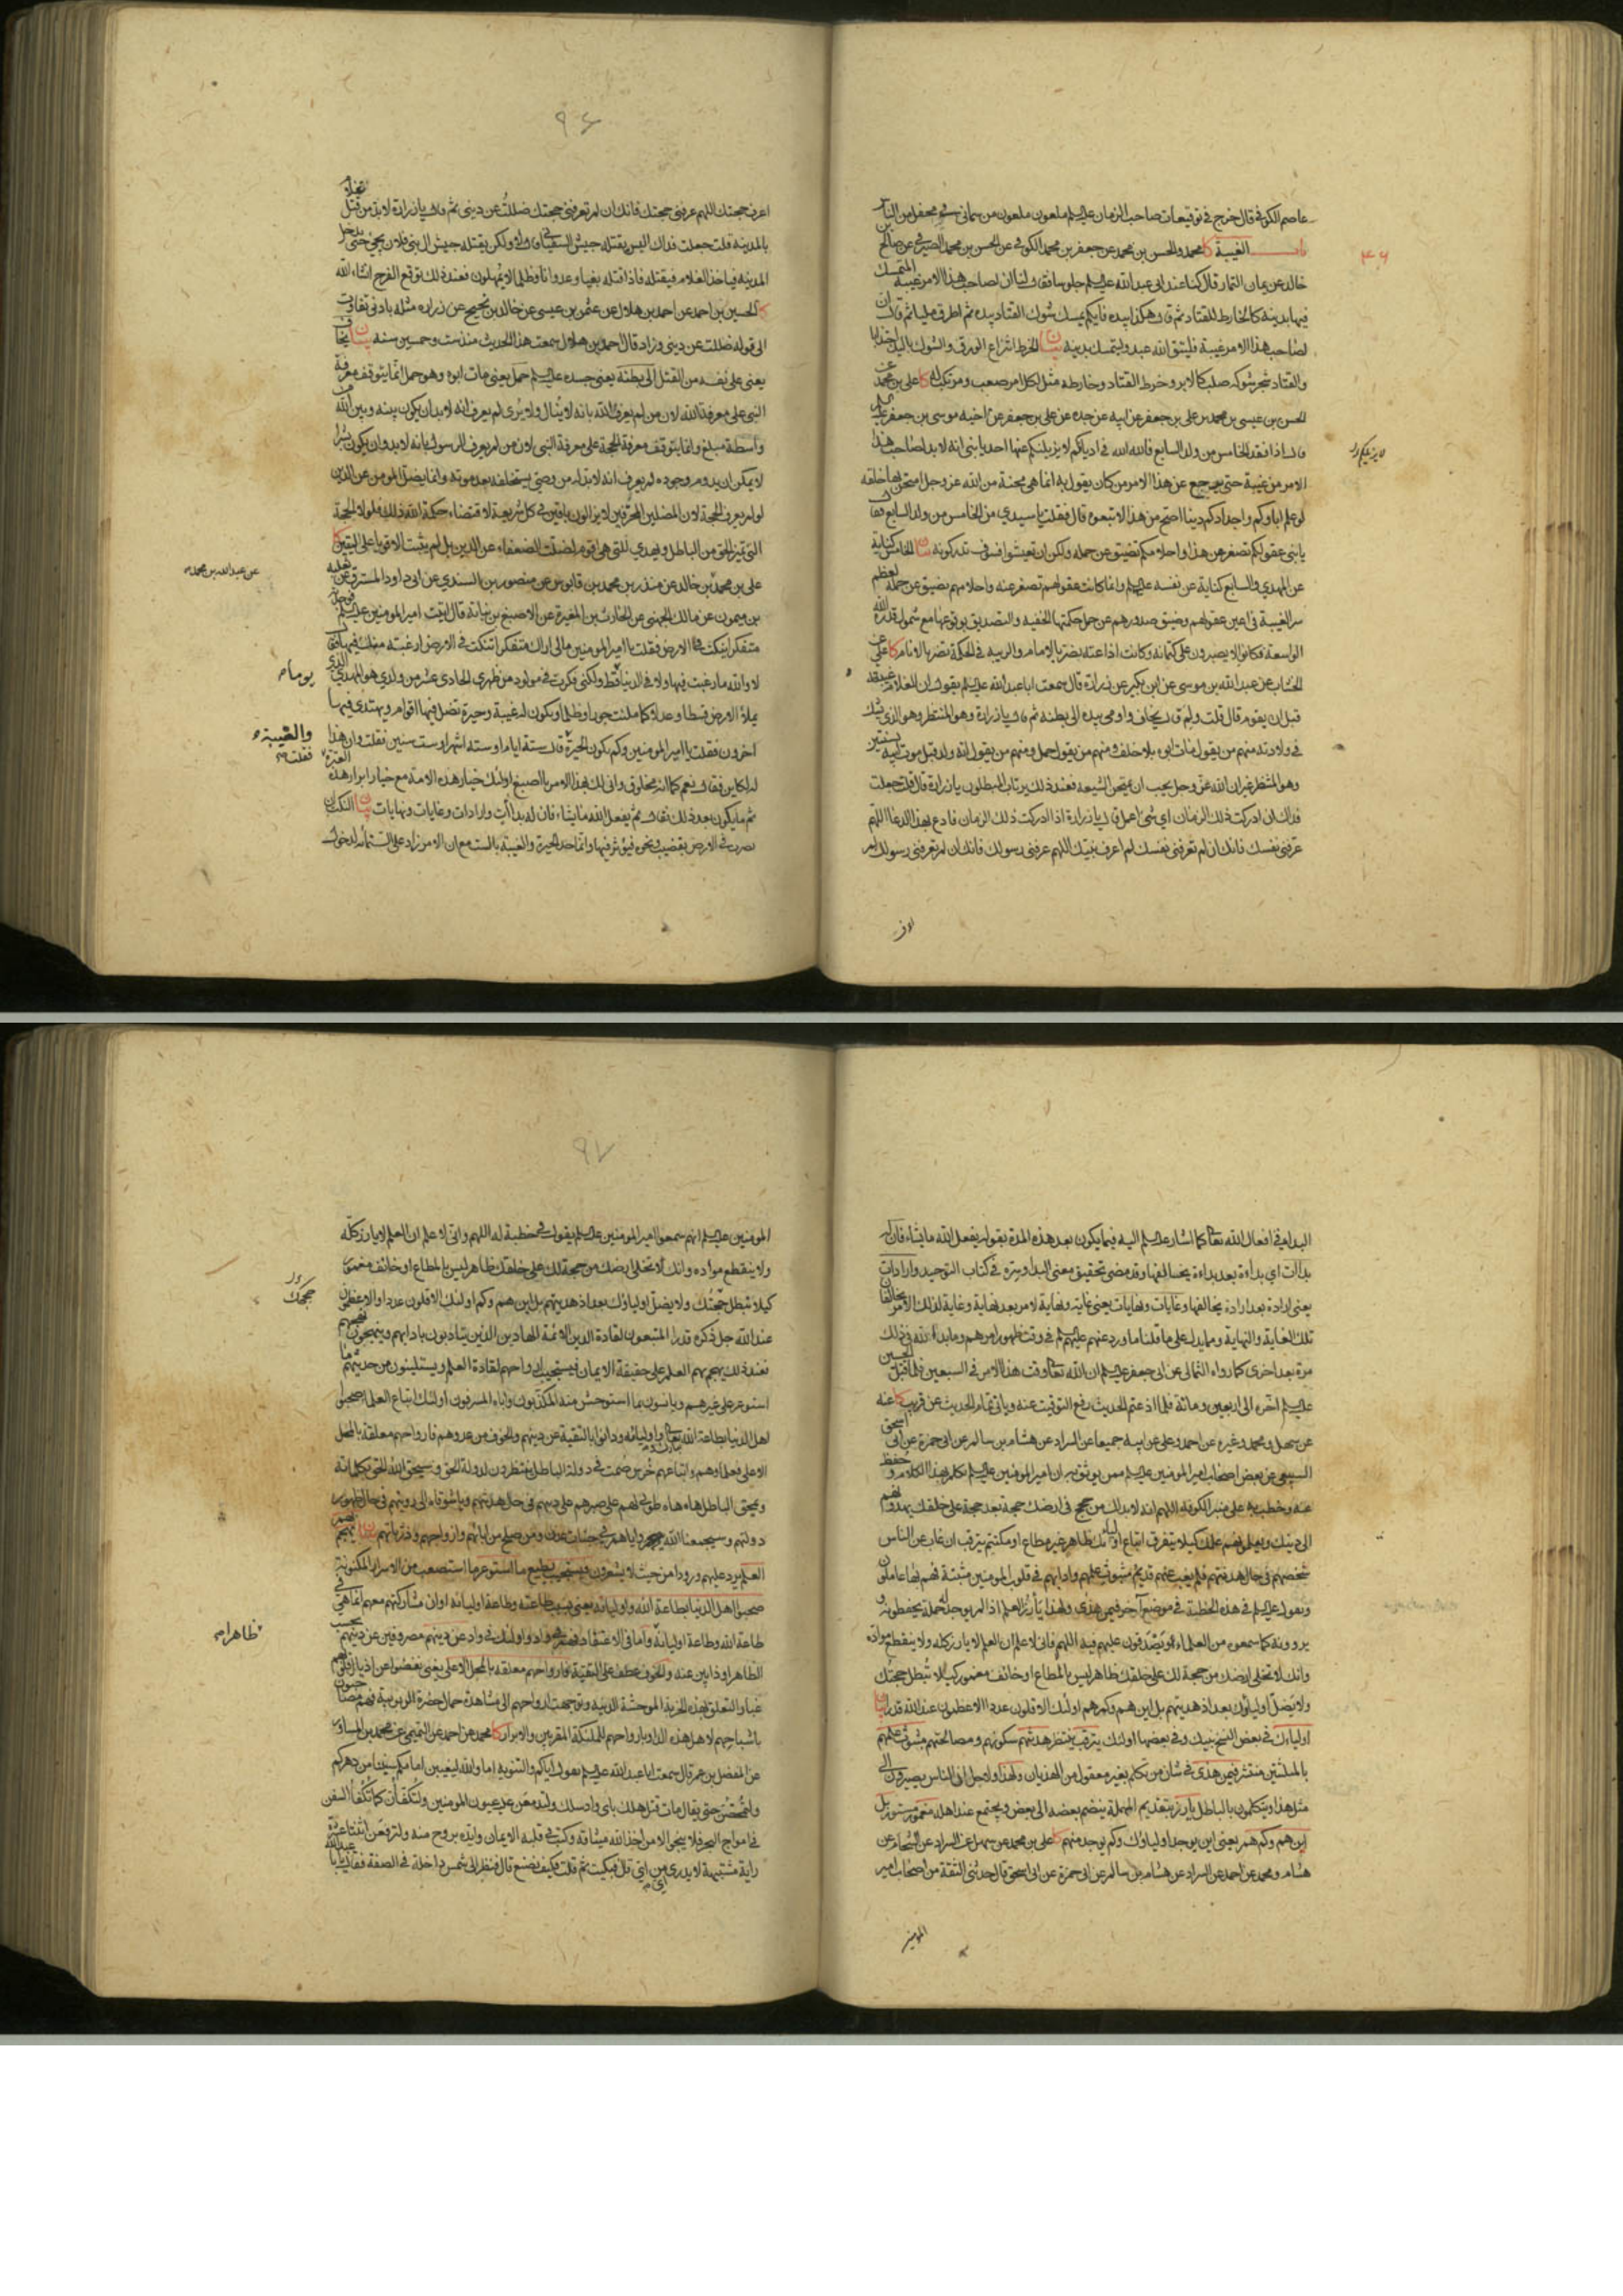 عاصم الكوفي قال خرج في توقيعات صاحب الزمان عليه السلم ملعون ملعون من سماني في محفل من الناس
باب الغيبة كا محمد والحسن بن محمد عن جعفر بن محمد الكوفي عن الحسن بن محمد الصيرفي عن صالح
خالد عن يمان التمار قال كنا عند ابي عبد الله عليه السلم جلوسا فقال لنا ان لصاحب هذا الامر غيبة المتمسك
فيها بدينه كالخارط للقتاد ثم قال هكذا بيده فايكم يمسك شوك القتاد بيده ثم اطرق مليا ثم قال ان
لصاحب هذا الامر غيبة فليتق الله عبد وليتمسك بدينه بيان الخرط انتزاع الورق والشوك باليد اجتذابا
والقتاد شجر شوكه صلب كالابر وخرط القتاد وخارطه مثل لكل امر صعب ومرتكبه كا علي بن محمد عن
الحسن بن عيسى بن محمد بن علي بن جعفر عن ابيه عن جده عن علي بن جعفر عن اخيه موسى بن جعفر عليه السلم
قال اذا فقد الخامس من ولد السابع فالله الله في اديانكم لا يزيلنكم عنها احد يا بني انه لا بد لصاحب هذا
الامر من غيبة حتى يرجع عن هذا الامر من كان يقول به انما هي محنة من الله عز وجل امتحن بها خلقه
لو علم اباؤكم واجدادكم دينا اصح من هذا لاتبعوه قال فقلت يا سيدي من الخامس من ولد السابع فقال
يا بني عقولكم تصغر عن هذا واحلامكم تضيق عن حمله ولكن ان تعيشوا فسوف تدركونه بيان الخامس كناية
عن المهدي والسابع كناية عن نفسه عليه السلم وانما كانت عقولهم تصغر عنه واحلامهم تضيق عن حمله لعظم
سر الغيبة في اعين عقولهم وضيق صدورهم عن حمل حكمتها الخفية والتصديق بوقوعها مع شمول قدرة الله
الواسعة فكانوا لا يصبرون على كتمانه وكانت اذاعته يضر بالامام والريبة في الحكمة تضر بالانام كا علي عن
الخشاب عن عبد الله بن موسى عن ابن بكير عن زرارة قال سمعت ابا عبد الله عليه السلم يقول ان للغلام غيبة
قبل ان يقوم قال قلت ولم قال يخاف واومى بيده الى بطنه ثم قال يا زرارة وهو المنتظر وهو الذي يشك
في ولادته منهم من يقول مات ابوه بلا خلف ومنهم من يقول حمل ومنهم من يقول انه ولد قبل موت ابيه بسنتين
وهو المنتظر غير ان الله عز وجل يحب ان يمتحن الشيعة فعند ذلك يرتاب المبطلون يا زرارة قال قلت جعلت
فداك ان ادركت ذلك الزمان اي شئ اعمل قال يا زرارة اذا ادركت ذلك الزمان فادع بهذا الدعا اللهم
عرفني نفسك فانك ان لم تعرفني نفسك لم اعرف نبيك اللهم عرفني رسولك فانك ان لم تعرفني رسولك لم
اعرف
٩٦
اعرف حجتك اللهم عرفني حجتك فانك ان لم تعرفني حجتك ضللت عن ديني ثم قال يا زرارة لا بد من قتل غلام
بالمدينة قلت جعلت فداك اليس يقتله جيش السفياني قال لا ولكن يقتله جيش ال بني فلان يجئ حتى يدخل
المدينة فياخذ الغلام فيقتله فاذا قتله بغيا وعدوانا وظلما لا يمهلون فعند ذلك توقع الفرج انشاء الله
كا الحسين بن احمد عن احمد بن هلال عن عثمن بن عيسى عن خالد بن نجيح عن زرارة مثله بادنى تفاوت
الى قوله ضللت عن ديني وزاد قال احمد بن هلال سمعت هذا الحديث منذ ست وخمسين سنة بيان يخاف
يعني على نفسه من القتل الى بطنه يعني جسده عليه السلم حمل يعني مات ابوه وهو حمل انما يتوقف معرفة
النبي على معرفة الله لان من لم يعرف الله بانه لا ينال ولا يرى لم يعرف انه لا بد ان يكون بينه وبين الله
واسطة مبلغ وانما يتوقف معرفة الحجة على معرفة النبي لان من لم يعرف الرسول بانه لا بد وان يكون بشرا
لا يمكن ان يدوم وجوده لم يعرف انه لا بد له من وصي يستخلفه بعد موته وانما يضل المؤمن عن الدين
لو لم يعرف الحجة لان المضلين المحرفين لا يزالون باقين في كل شريعة لاقتضاء حكمة الله ذلك فلولا الحجة
التي تميز الحق من الباطل ويهدي للتي هي اقوم لضلت الضعفاء عن الدين بل لم يثبت الاقويا على اليقين كا
علي بن محمد بن خالد عن منذر بن محمد بن قابوس عن منصور بن السندي عن ابي داود المسترق عن ثعلبة
عن عبد الله بن محمد
بن ميمون عن مالك الجهني عن الحارث بن المغيرة عن الاصبغ بن نباتة قال اتيت امير المؤمنين عليه السلم فوجدته
متفكرا ينكت في الارض فقلت يا امير المؤمنين ما لي اراك متفكرا تنكت في الارض ارغبة منك فيها فقال
لا والله ما رغبت فيها ولا في الدنيا قط ولكني فكرت في مولود من ظهري الحادي عشر من ولدي هو المهدي الذي
يوما
يملأ الارض قسطا وعدلا كما ملئت جورا وظلما ويكون له غيبة وحيرة تضل فيها اقوام ويهتدى فيها
اخرون فقلت يا امير المؤمنين وكم تكون الحيرة قال ستة ايام او ستة اشهر او ست سنين فقلت وان هذا
والغيبة
فقلت
لكاين فقال نعم كما انه مخلوق وانى لك بهذا الامر يا اصبغ اولئك خيار هذه الامة مع خيار ابرار هذه العترة
ثم ما يكون بعد ذلك فقال ثم يفعل الله ما يشاء فان له بداآت وارادات وغايات ونهايات بيان النكت ان
تضرب في الارض بقضيب ونحوه فيؤثر فيها وانما حد الحيرة والغيبة بالست مع ان الامر زاد على الستمائة لدخول
البداء في افعال الله تعالى كما اشار عليه السلم اليه فيما يكون بعد هذه المدة بقوله يفعل الله ما يشاء فان له
بداآت اي بداءة بعد بداءة يخالفها وقد مضى تحقيق معنى البداء وسره في كتاب التوحيد وارادات
يعني ارادة بعد ارادة يخالفها وغايات ونهايات يعني غاية ونهاية لامر بعد نهاية وغاية لذلك الامر يخالفان
تلك الغاية والنهاية ومما يدل على ما قلنا ما ورد عنهم عليهم السلم في وقت ظهور امرهم وما بدا لله في ذلك
مرة بعد اخرى كما رواه الثمالي عن ابي جعفر عليه السلم ان الله تعالى وقت هذا الامر في السبعين فلما قتل الحسين
عليه السلم اخره الى اربعين ومائة فلما اذعتم الحديث رفع التوقيت عنه وياتي تمام الحديث عن قريب كا عدة
عن سهل ومحمد وغيره عن احمد وعلي عن ابيه جميعا عن السراد عن هشام بن سالم عن ابي حمزة عن ابي اسحق
السبيعي عن بعض اصحاب امير المؤمنين عليه السلم ممن يوثق به ان امير المؤمنين عليه السلم تكلم بهذا الكلام وحفظ
عنه وخطب به على منبر الكوفة اللهم انه لا بد لك من حجج في ارضك حجة بعد حجة على خلقك يهدونهم
الى دينك ويعلمونهم علمك كيلا يتفرق اتباع اوليائك ظاهر غير مطاع او مكتتم يترقب ان غاب عن الناس
شخصهم في حال هدنتهم فلم يغب عنهم قديم مبثوث علمهم وادابهم في قلوب المؤمنين مثبتة فهم بها عاملون
ويقول عليه السلم في هذه الخطبة في موضع آخر فيمن هذا ولهذا يأرز العلم اذا لم يوجد له حملة يحفظونه و
يروونه كما سمعوه من العلماء ويصدقون عليهم فيه اللهم فاني لاعلم ان العلم لا يارز كله ولا ينقطع مواده
وانك لا تخلي ارضك من حجة لك على خلقك ظاهر ليس بالمطاع او خائف مغمور كيلا تبطل حجتك
ولا يضل اولياؤك بعد اذ هديتهم بل اين هم وكم هم اولئك الاقلون عددا الاعظمون عند الله قدرا بيان
اولياءك في بعض النسخ نبيك وفي بعضها اولئك يترقب ينتظر هدنتهم سكونهم ومصالحتهم مبثوث علمهم
بالمثلثتين منتشره فيمن هذى في شان من تكلم بغير معقول من الهذيان ولهذا ولاجل ان الناس يصيرون الى
مثل هذا ويتكلمون بالباطل يأرز بتقديم المهملة ينضم بعضه الى بعض ويجتمع عند اهله مغمور مستور بل
اين هم وكم هم يعني اين يوجد اولياؤك وكم يوجد منهم كا علي بن محمد عن سهل عن السراد عن الشحام عن
هشام ومحمد عن احمد عن السراد عن هشام بن سالم عن ابي حمزة عن ابي اسحق قال حدثني الثقة من اصحاب امير
المؤمنين
٩٧
المؤمنين عليه السلم انهم سمعوا امير المؤمنين عليه السلم يقول في خطبة له اللهم واني لاعلم ان العلم لا يارز كله
ولا ينقطع مواده وانك لا تخلي ارضك من حجة لك على خلقك ظاهر ليس بالمطاع او خائف مغمور
كيلا تبطل حجتك ولا يضل اولياؤك بعد اذ هديتهم بل اين هم وكم اولئك الاقلون عددا والاعظمون
حججك
عند الله جل ذكره قدرا المتبعون لقادة الدين الائمة الهادين الذين يتادبون بادابهم وينهجون نهجهم
فعند ذلك يهجم بهم العلم على حقيقة الايمان فيستجيب ارواحهم لقادة العلم ويستلينون من حديثهم ما
استوعر على غيرهم ويانسون بما استوحش منه المكذبون واباه المسرفون اولئك اتباع العلماء صحبوا
اهل الدنيا بطاعة الله تعالى واوليائه ودانوا بالتقية عن دينهم والخوف من عدوهم فارواحهم معلقة بالمحل
الاعلى فعلماؤهم واتباعهم خرس صمت في دولة الباطل منتظرون لدولة الحق وسيحق الله الحق بكلماته
ويمحق الباطل هاه هاه طوبى لهم على صبرهم على دينهم في حال هدنتهم وياشوقاه الى رؤيتهم في حال ظهور
دولتهم وسيجمعنا الله واياهم في جنات عدن ومن صلح من ابائهم وازواجهم وذرياتهم بيان يهجم بهم
العلم يرد عليهم ورودا من حيث لا يشعرون فيستجيب يطيع ما استوعر ما استصعب من الاسرار المكنونة
صحبوا اهل الدنيا بطاعة الله واوليائه يعني بسبب طاعته وطاعة اوليائه او ان مشاركتهم معهم انما هي في
طاعة الله وطاعة اوليائه واما في الاعتقاد فهم في واد واولئك في واد عن دينهم مصروفين عن دينهم بحسب
ظاهرا
الظاهر او ذابين عنه والخوف عطف على التقية فارواحهم معلقة بالمحل الاعلى يعني نفضوا عن اذيال قلوبهم
غبار التعلق بهذه الخربة الموحشة الدنية وتوجهت ارواحهم الى مشاهدة جمال حضرة الربوبية فهم مصاحبون
باشباحهم لاهل هذه الدار وبارواحهم للملئكة المقربين والابرار كا محمد عن احمد عن التميمي عن محمد بن المساور
عن المفضل بن عمر قال سمعت ابا عبد الله عليه السلم يقول اياكم والتنويه اما والله ليغيبن امامكم سنينا من دهركم
ولتمحصن حتى يقال مات قتل هلك باي واد سلك ولتدمعن عليه عيون المؤمنين ولتكفأن كما تكفأ السفن
في امواج البحر فلا ينجو الا من اخذ الله ميثاقه وكتب في قلبه الايمان وايده بروح منه ولترفعن اثنتا عشرة
راية مشتبهة لا يدرى اي من اي قال فبكيت ثم قلت فكيف نصنع قال فنظر الى شمس داخلة في الصفة فقال يا ابا عبد الله